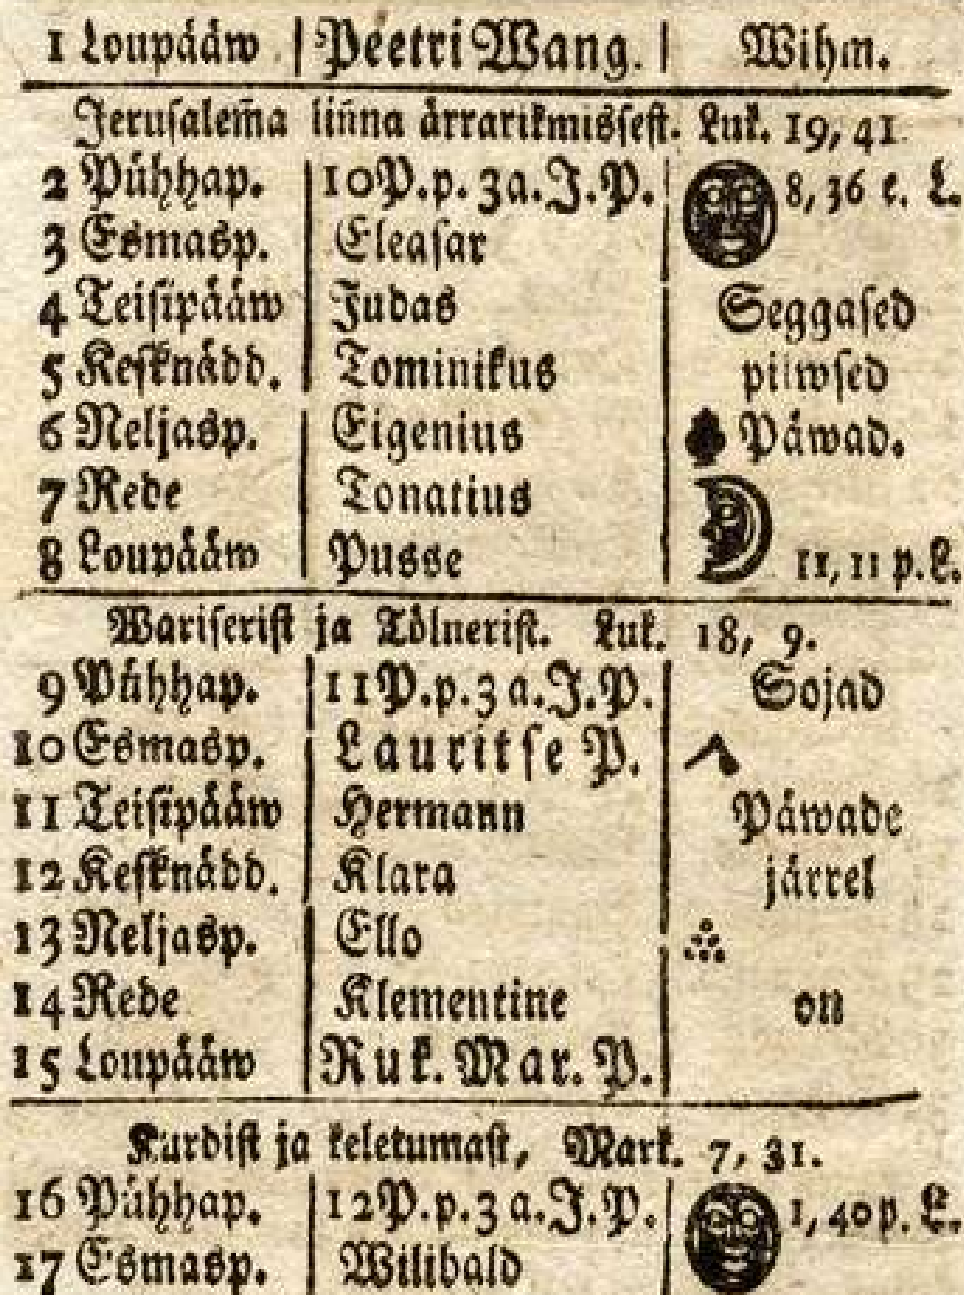 1 Loupääw | Peetri Wang. | Wihm.
Jerusalem̃a liñna ärrarikmissest. Luk. 19, 41.
2 Pühhap. | 10 P. p. 3 a. J. P. | 8, 36 e. L.
3 Esmasp. | Eleasar
4 Teisipääw | Judas | Seggased
5 Kesknädd. | Tominikus | pilwsed
6 Neljasp. | Eigenius | Päwad.
7 Rede | Tonatius
8 Loupääw | Pusse | 11, 11 p. L.
Wariserist ja Tölnerist. Luk. 18, 9.
9 Pühhap. | 11 P. p. 3 a. J. P. | Sojad
10 Esmasp. | Lauritse P.
11 Teisipääw | Hermann | Päwade
12 Kesknädd. | Klara | järrel
13 Neljasp. | Ello
14 Rede | Klementine | on
15 Loupääw | Ruk. Mar. P.
Kurdist ja keletumast, Mark. 7, 31.
16 Pühhap. | 12 P. p. 3 a. J. P. | 1, 40 p. L.
17 Esmasp. | Wilibald